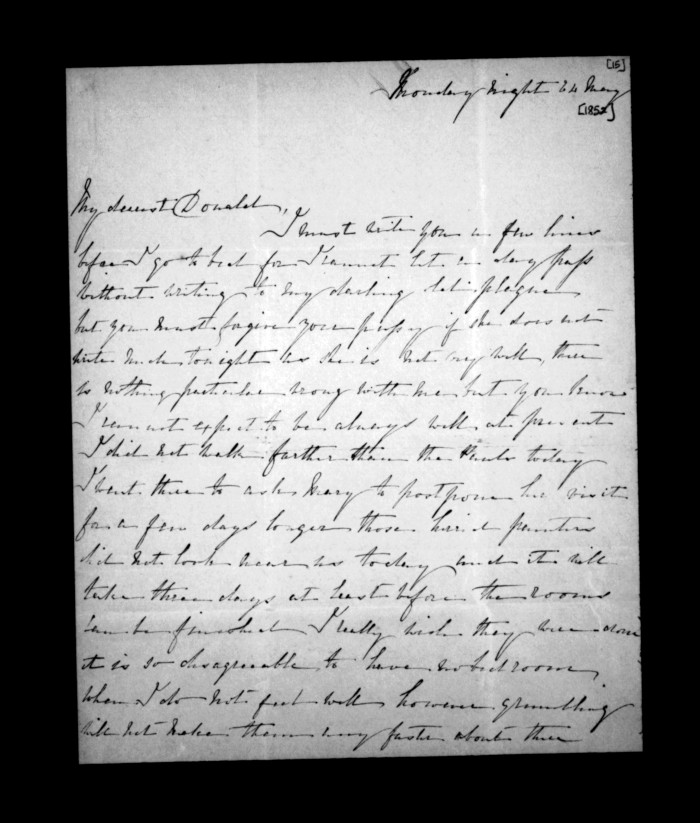 [15]
Monday night 24 May
[1852]
My dearest Donald,
I must write you a few lines
before I go to bed for I cannot let a day pass
without writing to my darling
but you must forgive your pussy if she does not
write much tonight as she is not very well, there
is nothing particular wrong with me but you know
I cannot expect to be always well at present
I did not walk farther than the today
I went there to ask Mary to postpone her visit
for a few days longer those horrid painters
did not look near us today and it will
take three days at least before the rooms
can be finished I really wish they were done
it is so disagreeable to have no bedroom
when I do not feel well however grumbling
will not make them any faster about there